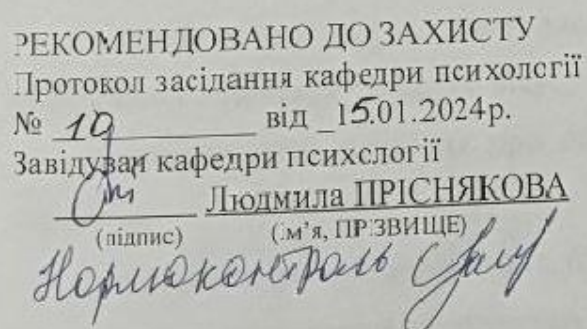 РЕКОМЕНДОВАНО ДО ЗАХИСТУ
Протокол засідання кафедри психології
№ 10 від _15.01.2024р.
Завідувач кафедри психології
Людмила ПРІСНЯКОВА
(підпис) (ім'я, ПРІЗВИЩЕ)
Нормоконтроль